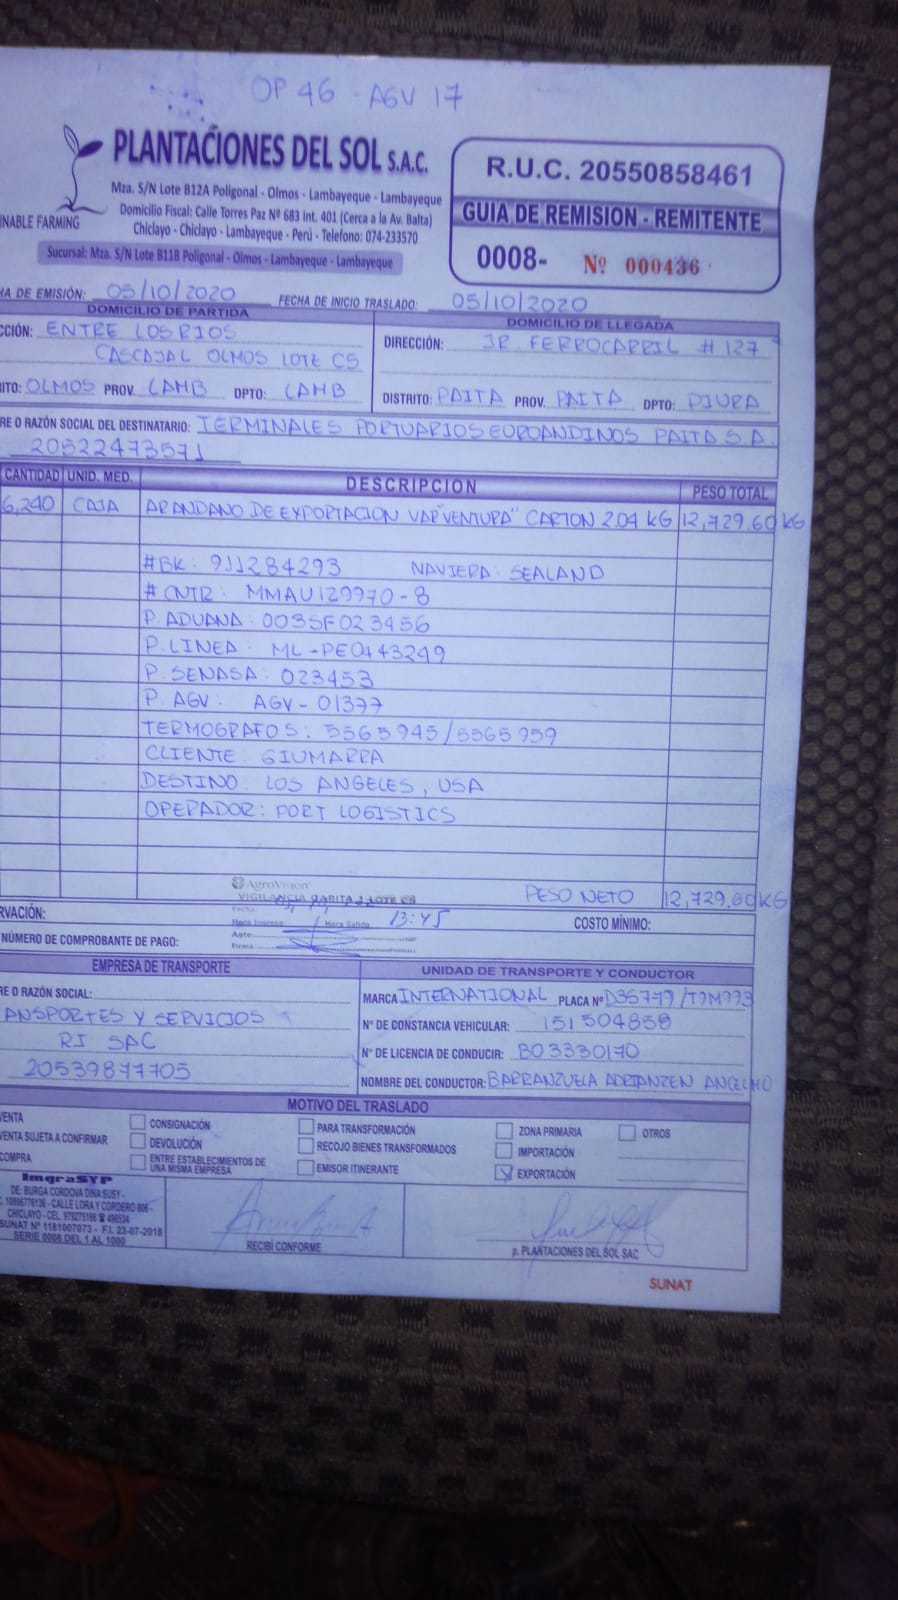 OP 46 - AGV 17
PLANTACIONES DEL SOL S.A.C.
Mza. S/N Lote B12A Poligonal - Olmos - Lambayeque - Lambayeque
Domicilio Fiscal: Calle Torres Paz Nº 683 Int. 401 (Cerca a la Av. Balta)
Chiclayo - Chiclayo - Lambayeque - Perú - Telefono: 074-233570
Sucursal: Mza. S/N Lote B11B Poligonal - Olmos - Lambayeque - Lambayeque
INABLE FARMING
R.U.C. 20550858461
GUIA DE REMISION - REMITENTE
0008- Nº 000436
HA DE EMISIÓN: 05/10/2020 FECHA DE INICIO TRASLADO: 05/10/2020
DOMICILIO DE PARTIDA
CCIÓN: ENTRE LOS RIOS
CASCAJAL OLMOS LOTE C5
RITO: OLMOS PROV. LAMB DPTO: LAMB
DOMICILIO DE LLEGADA
DIRECCIÓN: JR. FERROCARRIL # 127
DISTRITO: PAITA PROV. PAITA DPTO: PIURA
RE O RAZÓN SOCIAL DEL DESTINATARIO: TERMINALES PORTUARIOS EUROANDINOS PAITA S.A.
20522473571
CANTIDAD UNID. MED. DESCRIPCION PESO TOTAL
6,240 CAJA ARANDANO DE EXPORTACION VAR"VENTURA" CARTON 2.04 KG 12,729.60 KG
#BK: 911284293 NAVIERA: SEALAND
# CNTR: MMAU129970-8
P. ADUANA: 003SF023456
P. LINEA: ML-PE0443249
P. SENASA: 023453
P. AGV: AGV-01377
TERMOGRAFOS: 5565945/5565959
CLIENTE: GIUMARRA
DESTINO: LOS ANGELES, USA
OPERADOR: PORT LOGISTICS
AgroVision
VIGILANCIA GARITA 2 LOTE C5
PESO NETO 12,729.60 KG
Fecha
Hora Ingreso / Hora Salida 13:45
Agte:
Firma:
RVACIÓN:
COSTO MÍNIMO:
NÚMERO DE COMPROBANTE DE PAGO:
EMPRESA DE TRANSPORTE
RE O RAZÓN SOCIAL:
ANSPORTES Y SERVICIOS
RJ SAC
20539877705
UNIDAD DE TRANSPORTE Y CONDUCTOR
MARCA INTERNATIONAL PLACA Nº D3S779/T9M993
Nº DE CONSTANCIA VEHICULAR: 151504858
Nº DE LICENCIA DE CONDUCIR: B03330170
NOMBRE DEL CONDUCTOR: BARRANZUELA ADRIANZEN ANCELMO
MOTIVO DEL TRASLADO
VENTA CONSIGNACIÓN PARA TRANSFORMACIÓN ZONA PRIMARIA OTROS
VENTA SUJETA A CONFIRMAR DEVOLUCIÓN RECOJO BIENES TRANSFORMADOS IMPORTACIÓN
COMPRA ENTRE ESTABLECIMIENTOS DE
UNA MISMA EMPRESA EMISOR ITINERANTE EXPORTACIÓN
ImgraSYP
DE: BURGA CORDOVA DINA SUSY -
10866776136 - CALLE LORA Y CORDERO 806 -
CHICLAYO - CEL. 979275166
SUNAT Nº 1181007073 - F.I. 23-07-2018
SERIE 0008 DEL 1 AL 1000
RECIBÍ CONFORME
p. PLANTACIONES DEL SOL SAC
SUNAT